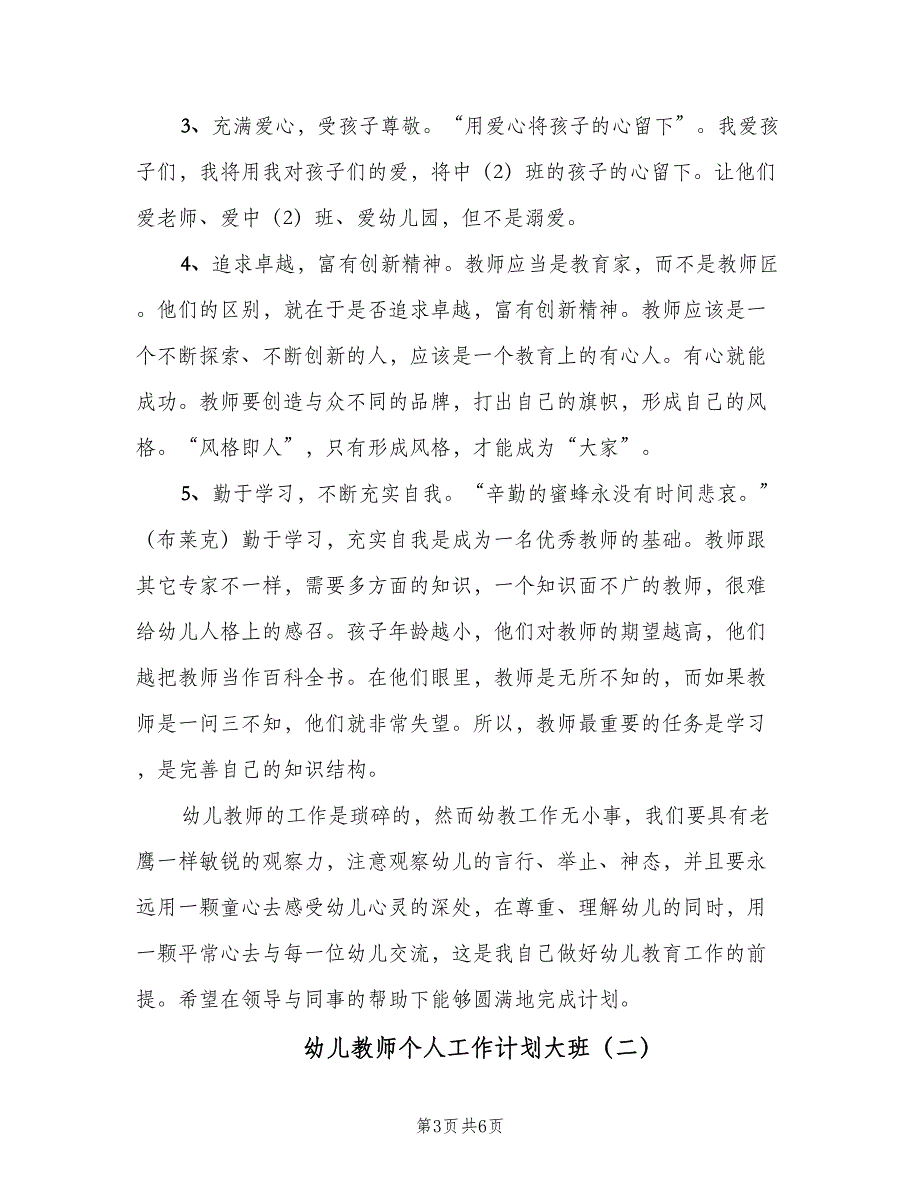 3、充满爱心，受孩子尊敬。“用爱心将孩子的心留下”。我爱孩
子们，我将用我对孩子们的爱，将中（2）班的孩子的心留下。让他们
爱老师、爱中（2）班、爱幼儿园，但不是溺爱。
4、追求卓越，富有创新精神。教师应当是教育家，而不是教师匠
。他们的区别，就在于是否追求卓越，富有创新精神。教师应该是一
个不断探索、不断创新的人，应该是一个教育上的有心人。有心就能
成功。教师要创造与众不同的品牌，打出自己的旗帜，形成自己的风
格。“风格即人”，只有形成风格，才能成为“大家”。
5、勤于学习，不断充实自我。“辛勤的蜜蜂永没有时间悲哀。”
（布莱克）勤于学习，充实自我是成为一名优秀教师的基础。教师跟
其它专家不一样，需要多方面的知识，一个知识面不广的教师，很难
给幼儿人格上的感召。孩子年龄越小，他们对教师的期望越高，他们
越把教师当作百科全书。在他们眼里，教师是无所不知的，而如果教
师是一问三不知，他们就非常失望。所以，教师最重要的任务是学习
，是完善自己的知识结构。
幼儿教师的工作是琐碎的，然而幼教工作无小事，我们要具有老
鹰一样敏锐的观察力，注意观察幼儿的言行、举止、神态，并且要永
远用一颗童心去感受幼儿心灵的深处，在尊重、理解幼儿的同时，用
一颗平常心去与每一位幼儿交流，这是我自己做好幼儿教育工作的前
提。希望在领导与同事的帮助下能够圆满地完成计划。
幼儿教师个人工作计划大班（二）
第3页 共6页